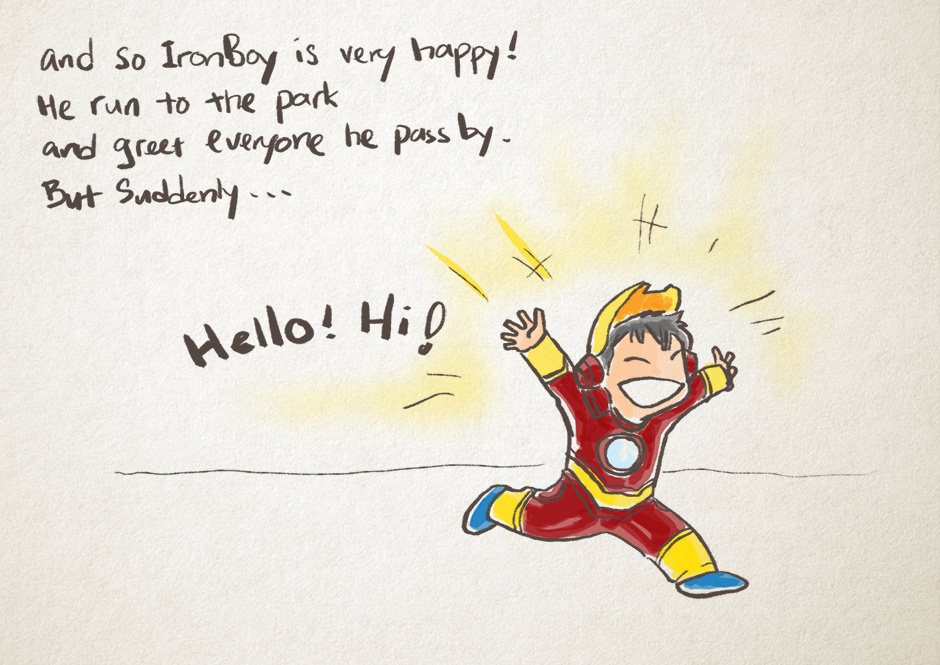 and so IronBoy is very happy!
He run to the park
and greet everyone he pass by.
But Suddenly...
Hello! Hi!